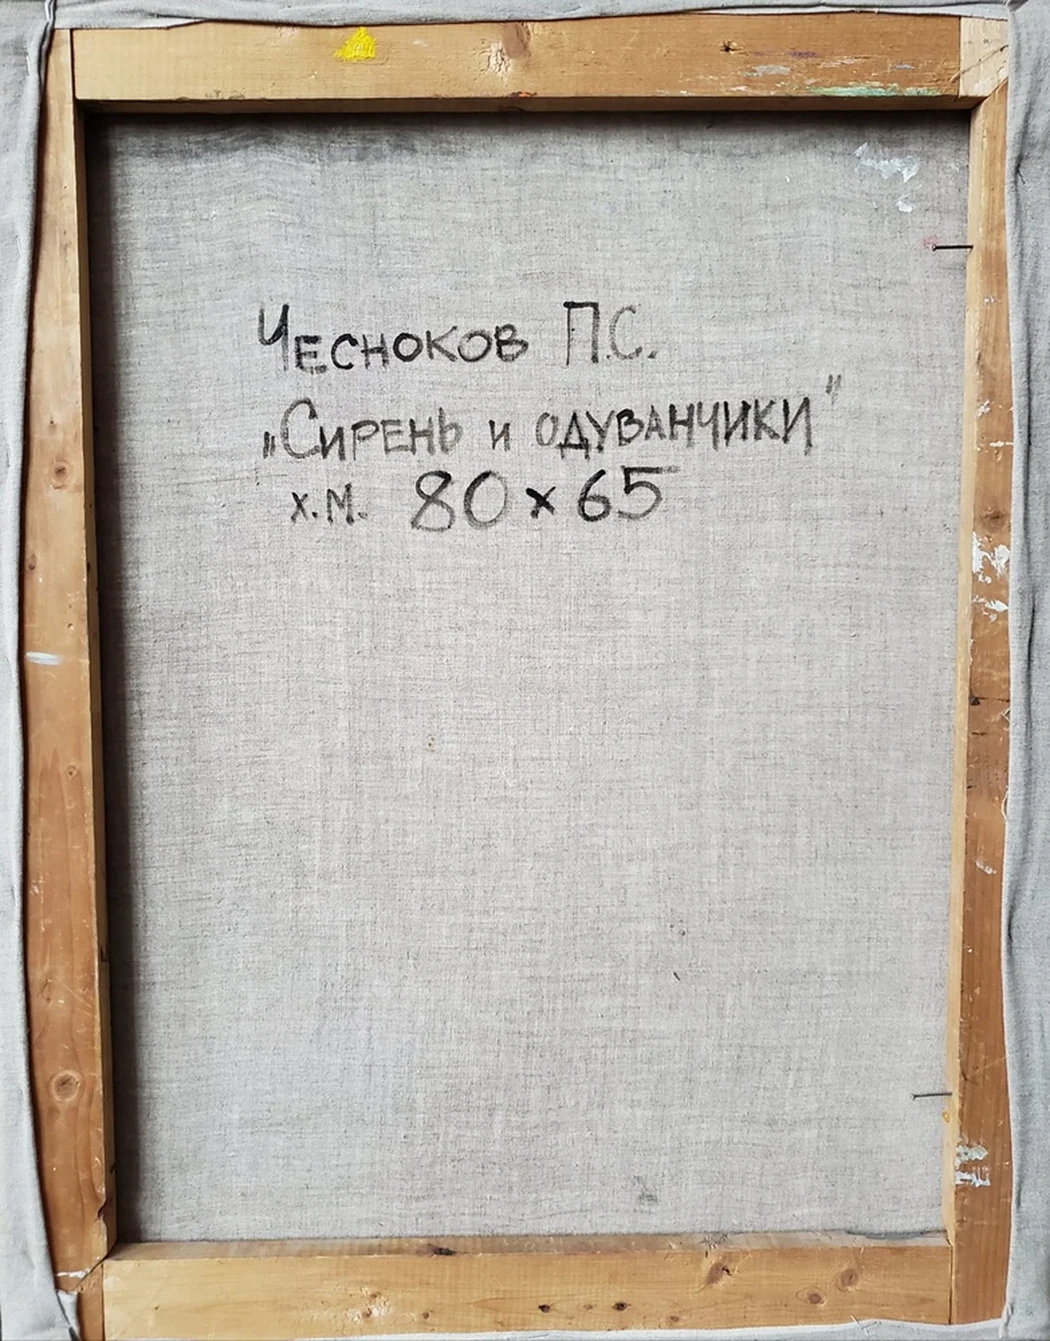 Чесноков П.С.
„Сирень и одуванчики"
х.м. 80 x 65